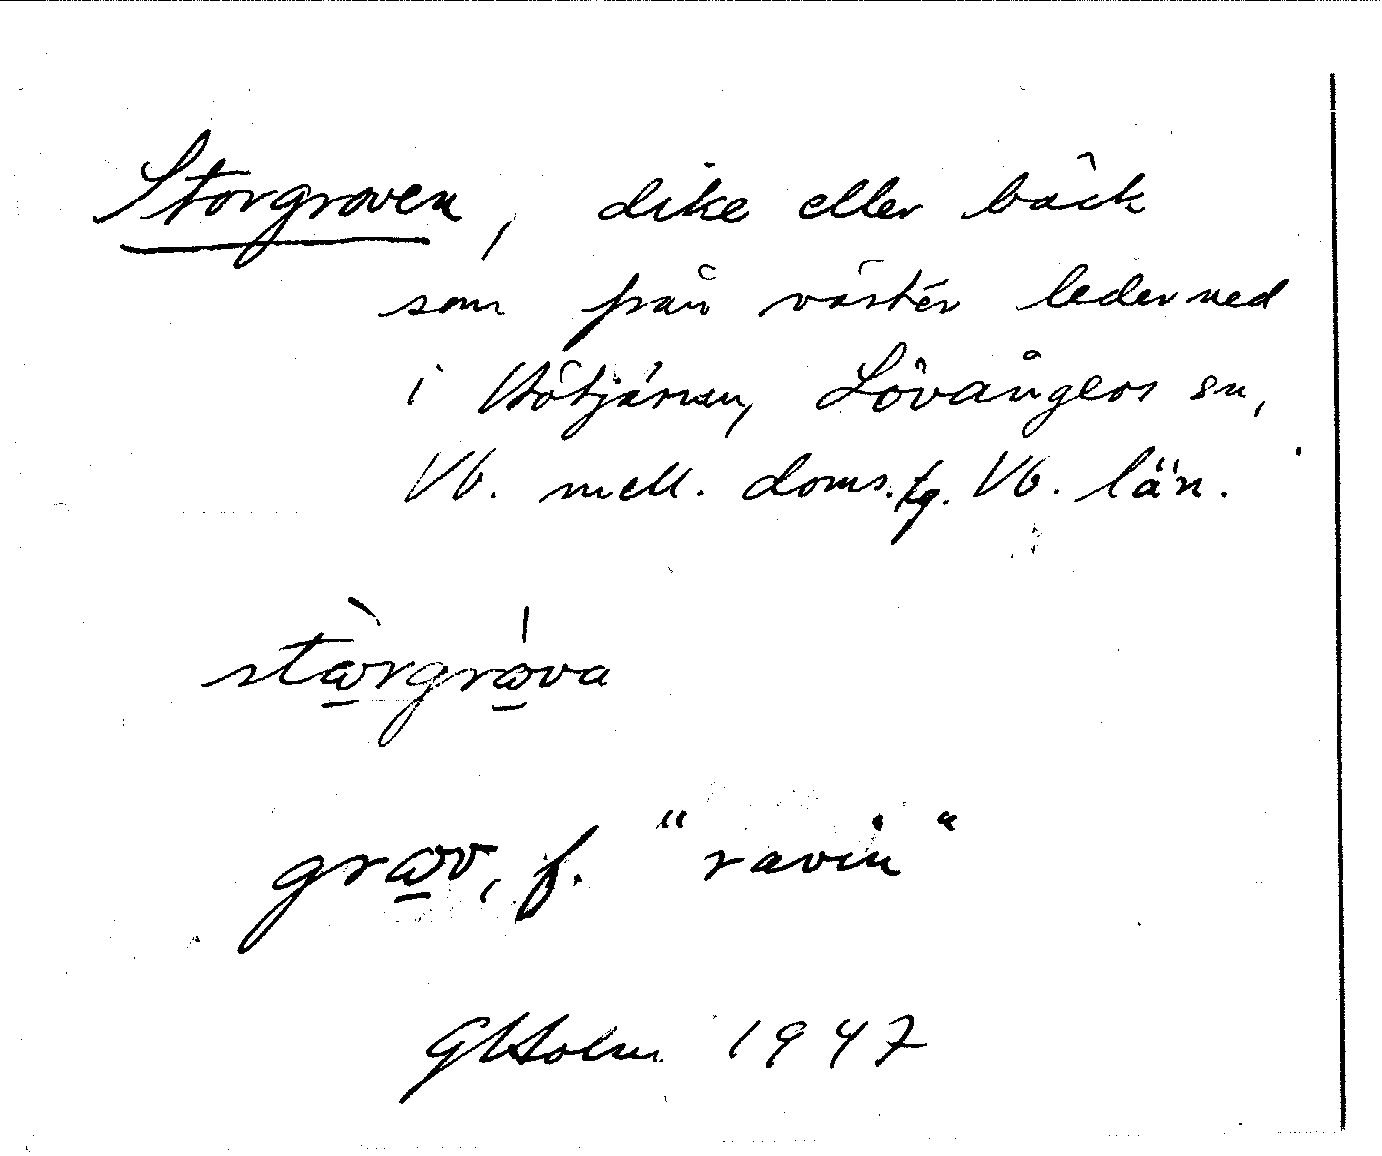 Storgroven, dike eller bäck
som från väster leder ned
i Hötjärnen, Lövångers sn,
Vb. mell. doms. tg. Vb. län.
stὼ̲rgrώ̲va
grω̲v, f. "ravin"
GHolm 1947